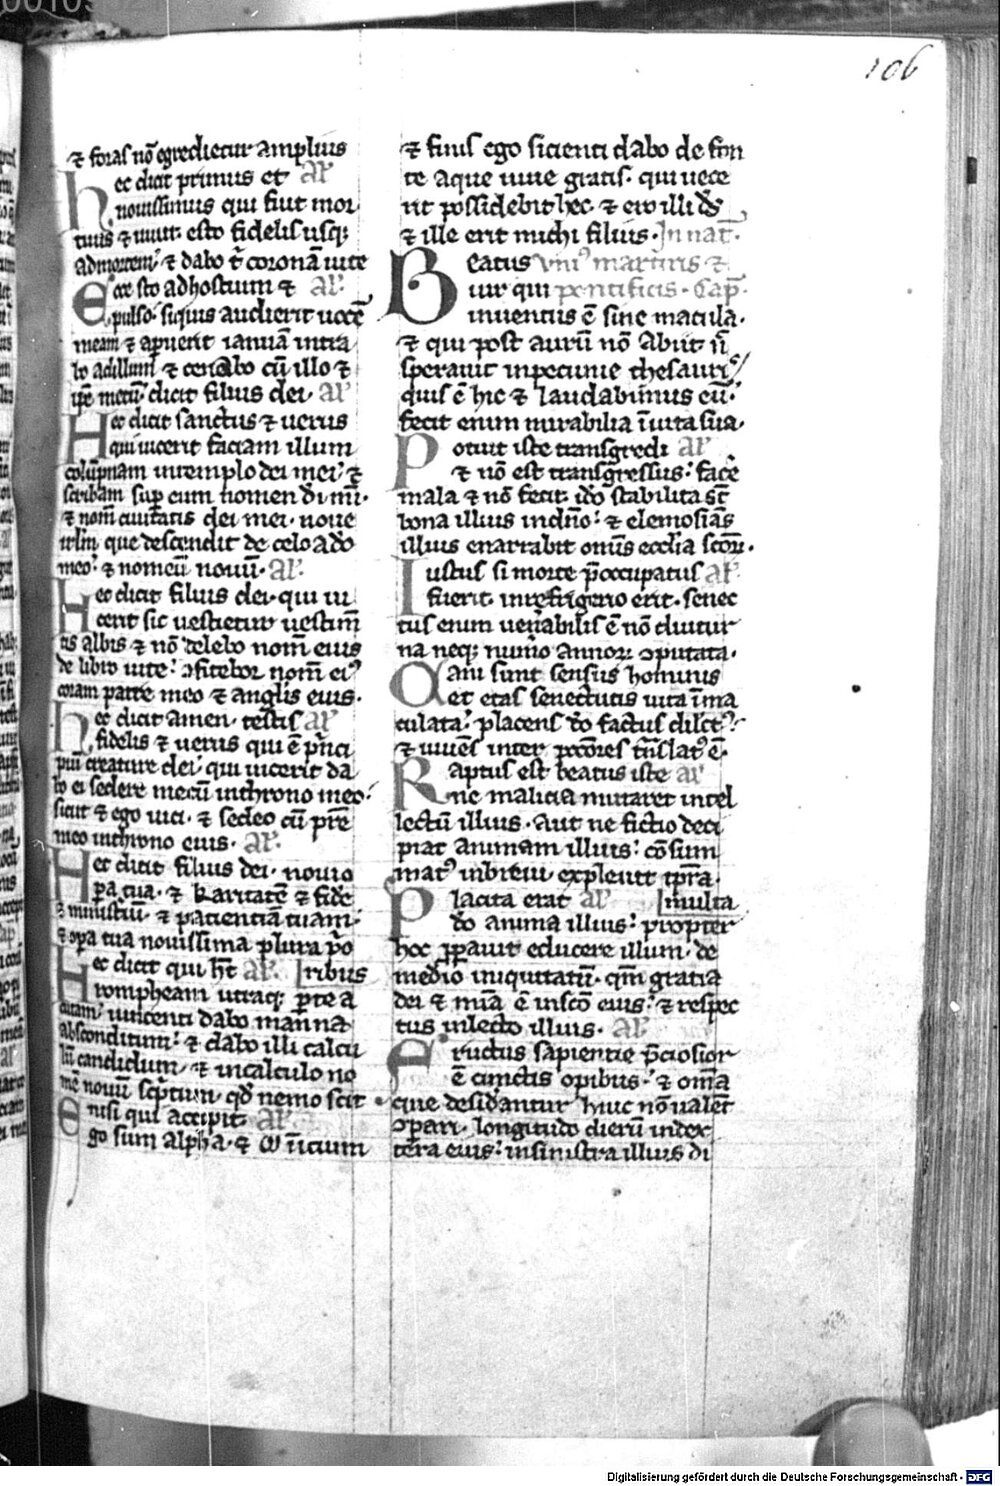 106
⁊ foras nō egredietur amplius
hec dicit primus et al̄
nouissimus qui fiut mor
tuus ⁊ uiuit· esto fidelis usq;
ad mortem· ⁊ dabo t̄ coronā uite
Ecce sto ad hostium ⁊ al̄·
pulso· siquis audierit uocē
meam ⁊ apuerit ianuā intra
bo ad illum ⁊ cenabo cū illo ⁊
ip̄e mecū· dicit filius dei· al̄
Hec dicit sanctus ⁊ uerus
qui uicerit faciam illum
colūpnam in templo dei mei· ⁊
scribam sup eum nomen di mi·
⁊ nom̄ ciuitatis dei mei· noue
irl̄m que descendit de celo a do
meo· ⁊ nomen nouū· al̄·
Hec dicit filius dei· qui ui
cerit sic uestietur uestim̄
tis albis ⁊ nō delebo nom̄ eius
de libro uite· ꝯfitebor nom̄ ei⁹
coram patre meo ⁊ anglis eius·
hec dicit amen· testis al̄
fidelis ⁊ uerus qui ē p̄nci
piū creature dei· qui uicerit da
bo ei sedere mecū in throno meo·
sicut ⁊ ego uici· ⁊ sedeo cū p̄re
meo in throno eius· al̄·
Hec dicit filius dei· noui o
pa tua· ⁊ karitatē ⁊ fidē
⁊ ministiū· ⁊ patientiā tuam·
⁊ opa tua nouissima plura p̄o
Hec dicit qui h̄t al̄· ribus
rompheam utraq; parte a
cutam· uincenti dabo manna
absconditum· ⁊ dabo illi calcu
lū candidum· ⁊ in calculo no
mē nouū scp̄tum· qd̄ nemo scit
nisi qui accipit· al̄·
Ego sum alpha· ⁊ ω īicium
⁊ finis ego sitienti dabo de fon
te aque uiue gratis· qui uice
rit possidebit hec ⁊ ero illi ds̄
⁊ ille erit michi filius· In nat̄·
Beatus vni⁹ martiris ⁊
uir qui pontificis· Cap̄·
inuentus ē sine macula·
⁊ qui post aurū nō abiit n̄
sperauit in pecunie thesauris
quis ē hic ⁊ laudabimus eū·
fecit enim mirabilia ī uita sua·
Potuit iste transgredi al̄
⁊ nō est transgressus· facē
mala ⁊ nō fecit· ido stabilita st̄
bona illius in dn̄o· ⁊ elemosīas
illius enarrabit omīs ecclīa scōꝝ·
Iustus si morte p̄occupatus al̄·
fuerit· in refrigerio erit· senec
tus enim uen̄abilis ē nō diutur
na neq; num̄o annoꝝ ꝯputata·
Cani sunt sensus hominis
et etas senectutis uita īma
culata· placens do factus dilct⁹·
⁊ uiuēs inter pccōres tn̄slat⁹ ē·
Raptus est beatus iste al̄
ne malicia mutaret intel
lectū illius· Aut ne fictio deci
piat animam illius· cōsum
mat⁹ in breui expleuit tp̄ra·
Placita erat al̄ multa
do anima illius· propter
hoc ꝓpauit educere illum· de
medio iniquitatū· qm̄ gratia
dei ⁊ mīa ē in scōs eius· ⁊ respec
tus in lecto illius· al̄
Fructus sapientie p̄ciosior
ē cunctis opibus· ⁊ om̄a
que desidantur huic nō ualēt
ꝯpari· longitudo dierū in dex
tera eius· in sinistra illius di
Digitalisierung gefördert durch die Deutsche Forschungsgemeinschaft - DFG